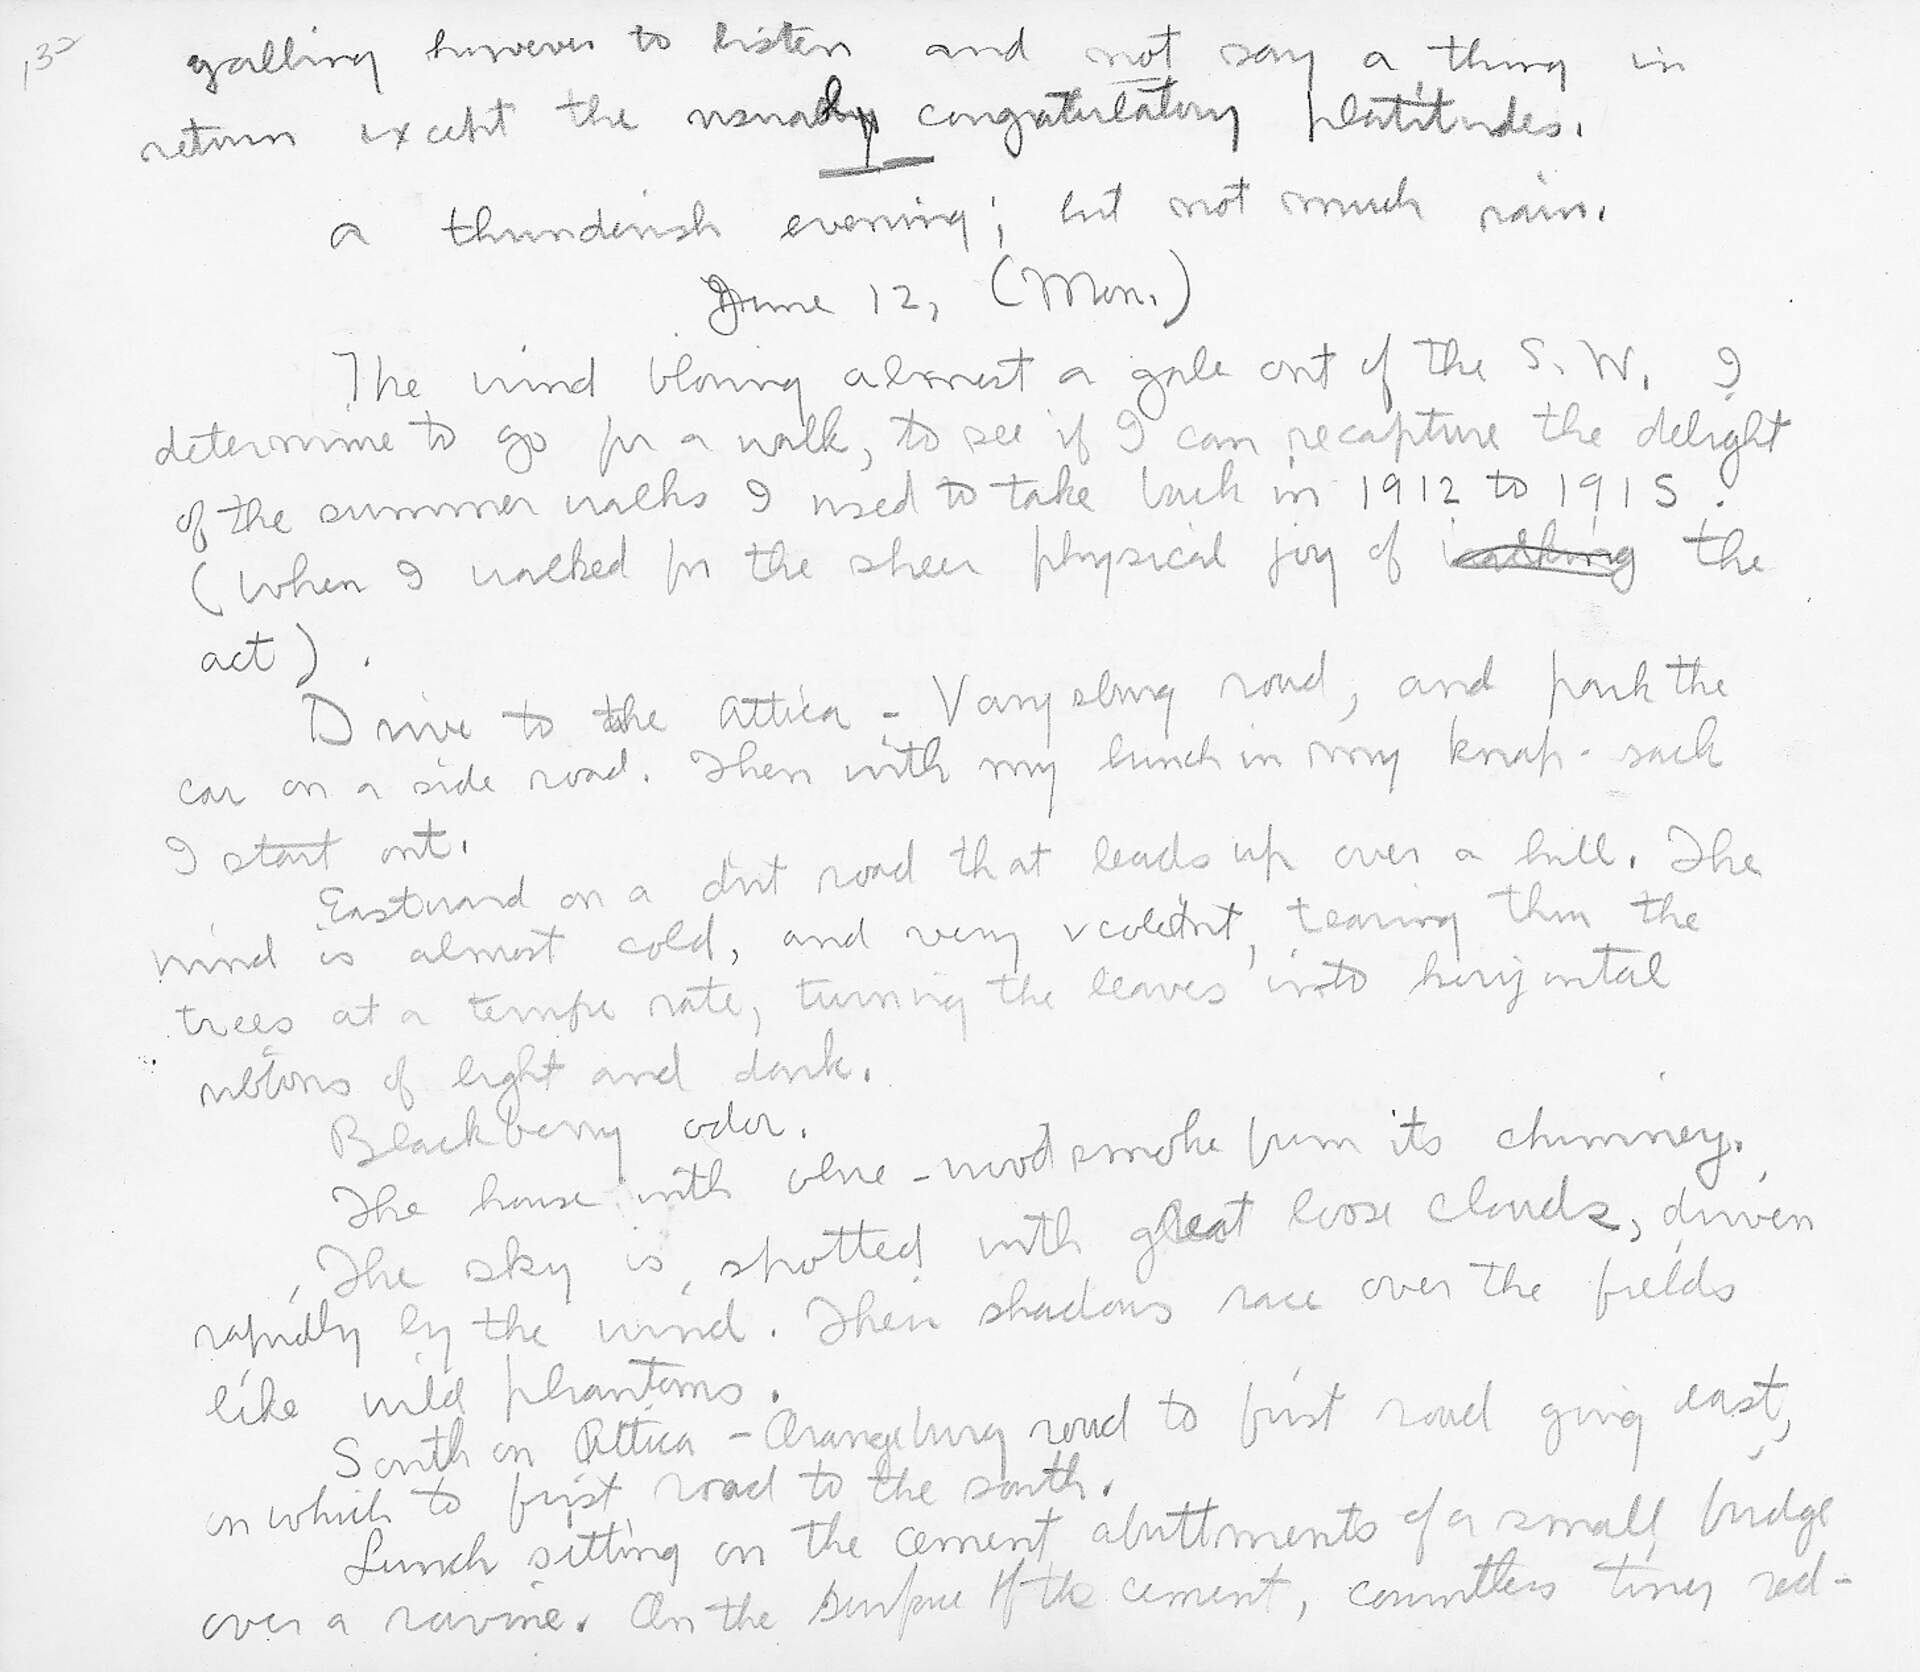 132
galling however to listen and not say a thing in
return except the usually congratulatory platitudes.
A thunderish evening; but not much rain.
June 12, (Mon.)
The wind blowing almost a gale out of the S.W. I
determine to go for a walk, to see if I can recapture the delight
of the summer walks I used to take back in 1912 to 1915.
(when I walked for the sheer physical joy of walking the
act).
Drive to the Attica - Varysburg road, and park the
car on a side road. Then with my lunch in my knap-sack
I start out.
Eastward on a dirt road that leads up over a hill. The
wind is almost cold, and very, tearing thru the
trees at a rate, turning the leaves into horizontal
ribbons of light and dark.
Blackberry odor.
The house with blue-wood smoke from its chimney.
The sky is spotted with great loose clouds, driven
rapidly by the wind. Their shadows race over the fields
like wild phantoms.
South on Attica - Orangeburg road to first road going east,
on which to first road to the south.
Lunch sitting on the cement abuttments of a small bridge
over a ravine. On the surface of the cement, countless tiny red-